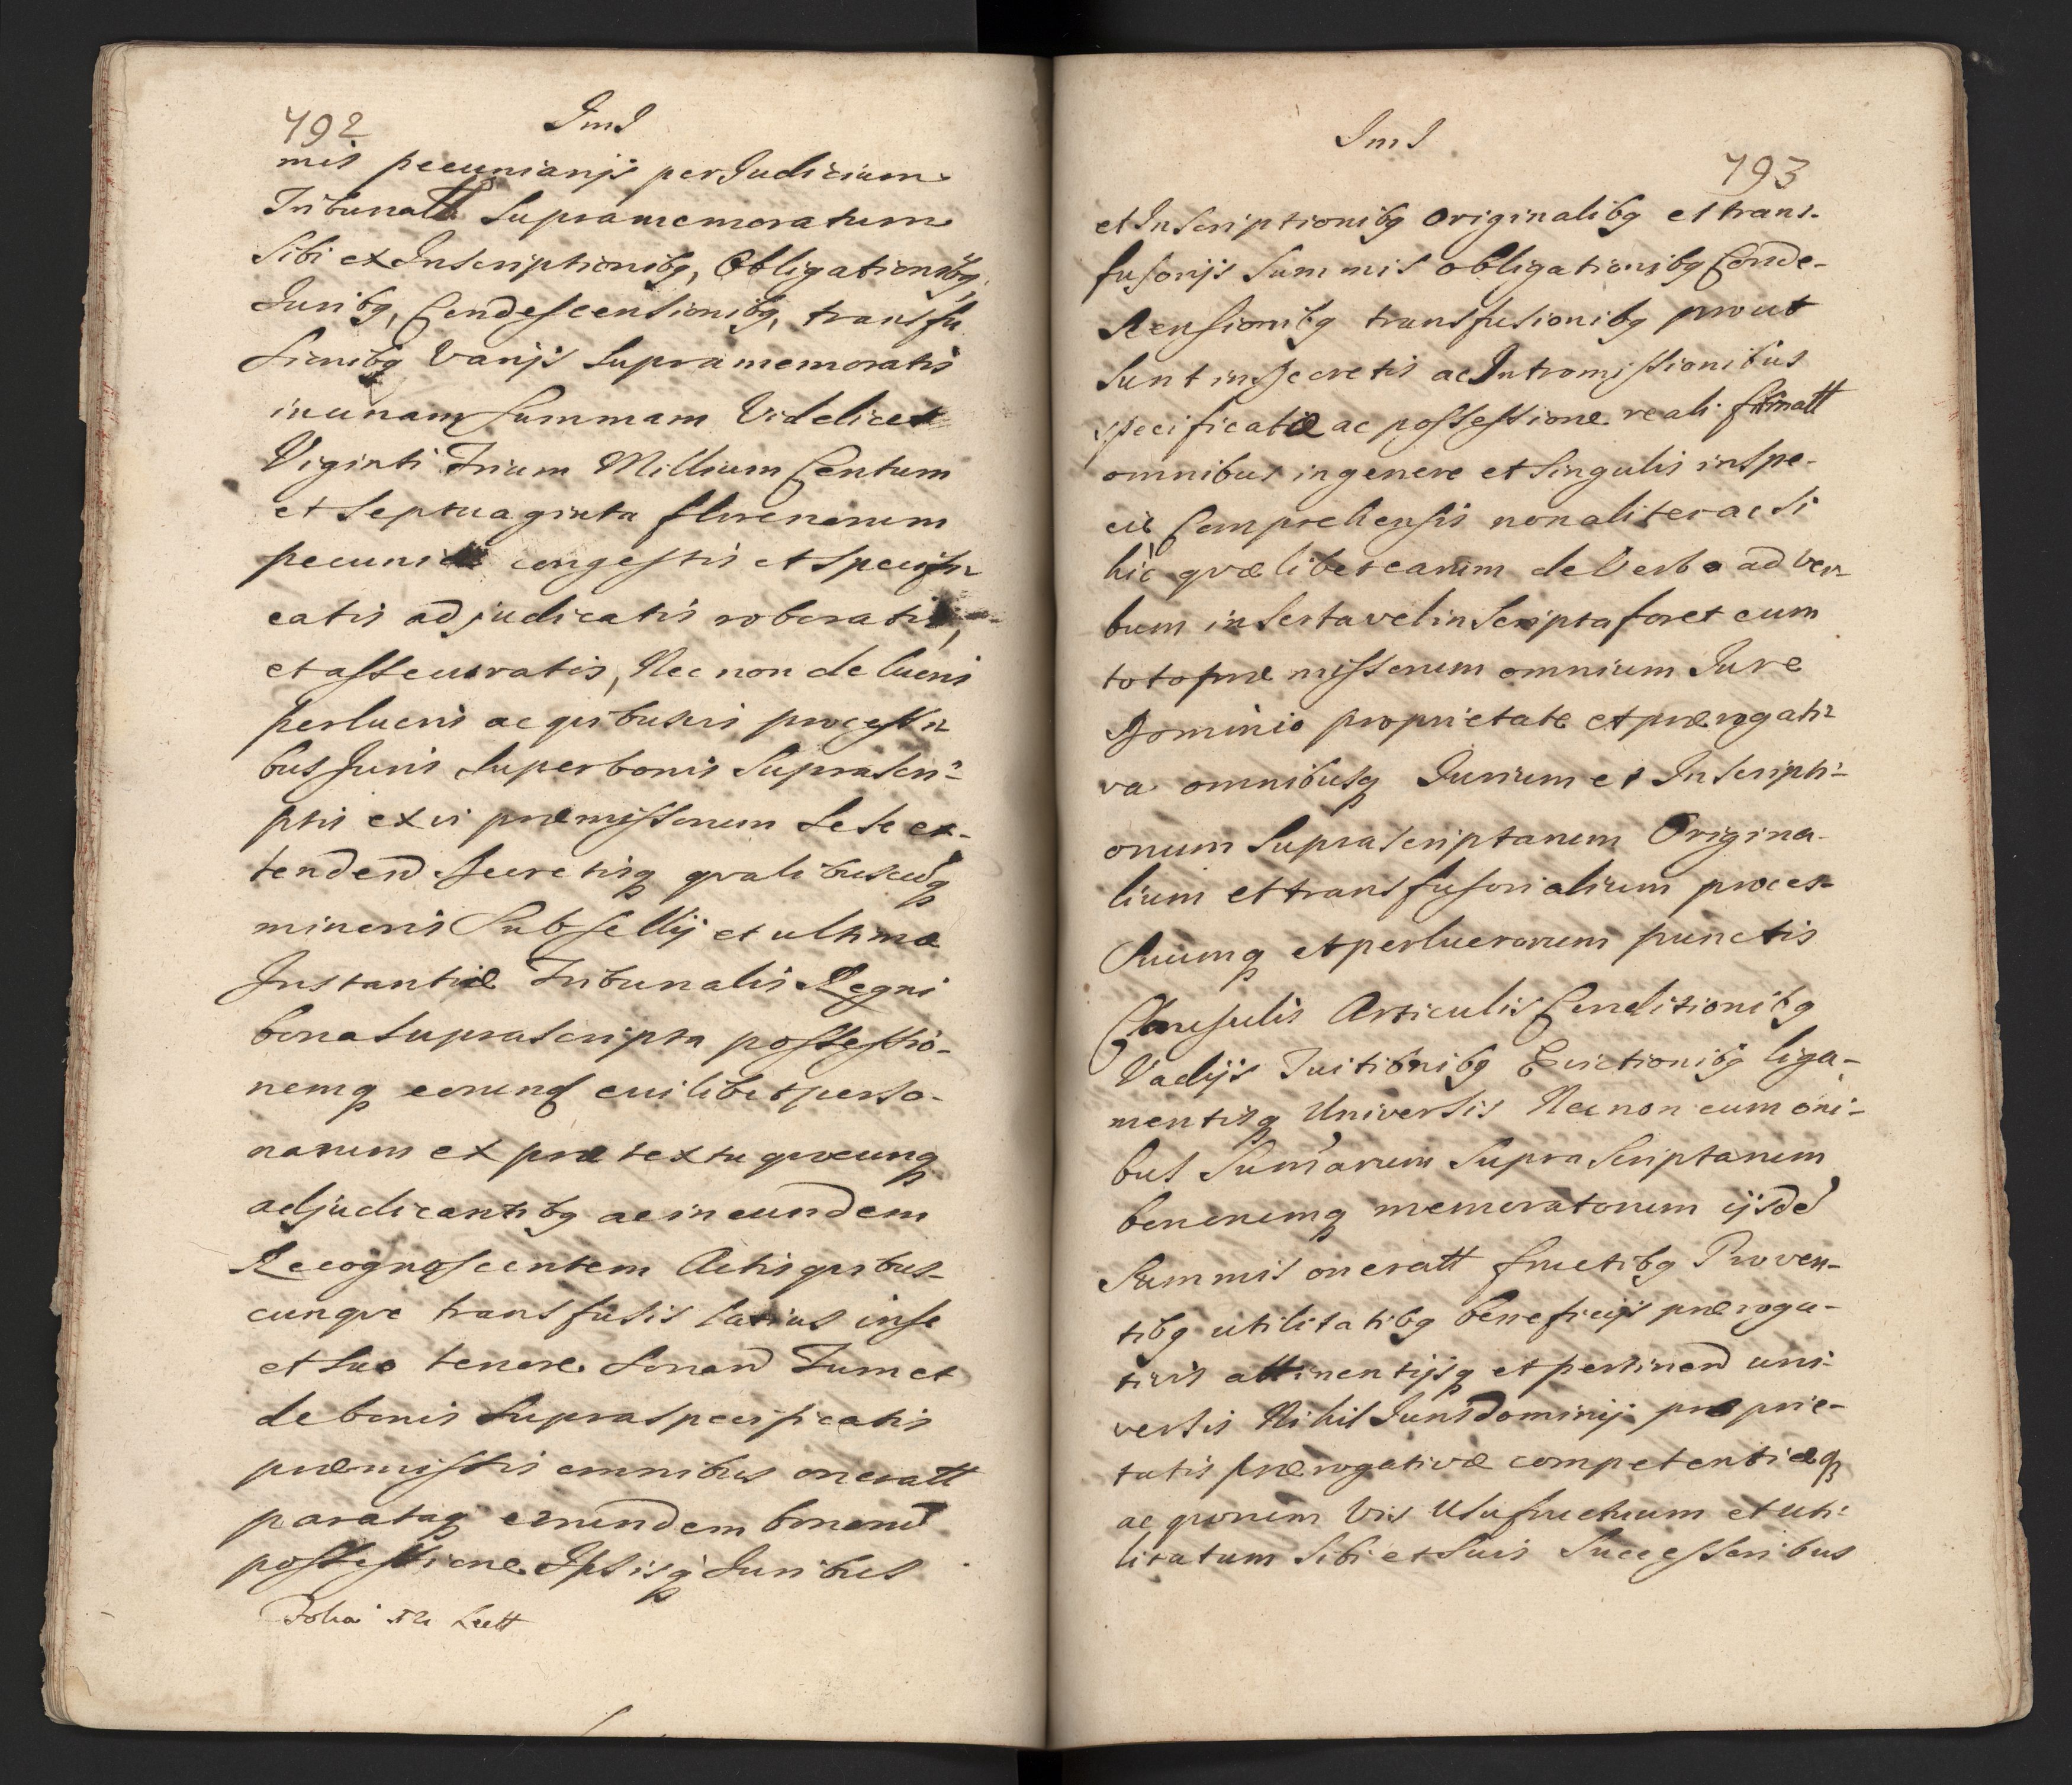 792
JmJ
mis pecuniarijs per Judicium
Tribunall Supramemoratum
Sibi ex Inscriptionibq, Obligationibq,
Juribq, Condescensionibq, transfu
sionibq varijs Supramemoratis
in unam summam Videlicet
Viginti Trium Millium Centum
et Septuaginta florenorum
pecuniæ congestis et specifi-
catis adjudicatis roboratis,
et assecuratis, Nec non de lucris
perlucris ac quibusvis processi-
bus Juris super bonis suprascri-
ptis ex vi præmissorum sese ex-
tendend decretisq qualibuscunq
minoris Subsellij et ultimæ
Instantiæ Tribunalis Regni
bona suprascripta possessio-
nemq eorund cuilibet perso-
narum ex prætextu quocunq
adjudicantibq ac in eundem
Recognoscentem Actis quibus-
cunque transfusis latius in se
et suo tenore sonand Tum et
de bonis supraspecificatis
præmissis omnibus oneratt
parataq eorundem bonorud
possessione Ipsisq Juribus
JmJ
793
et Inscriptionibq originalibq et trans-
fusorijs summis obligationibq Conde-
scensionibq transfusionibq prout
sunt in decretis ac Intromissionibus
specificatæ ac possessione reali firmatt
omnibus in genere et singulis in spe-
cie comprehensis non aliter ac si
hic quælibet earum de Verbo ad ver-
bum inserta vel inscripta foret cum
toto præmissorum omnium Jure
Dominio proprietate et prærogati-
va omnibusq Jurium et Inscripti-
onum Suprascriptarum Origina-
lium et transfusorialium proces-
suumq et perlucrorum punctis
Clausulis Articulis Conditionibq
Vadijs Tuitionibq Evictionibq liga-
mentisq Universis Nec non cum omi-
bus Sumarum Suprascriptarum
bonorumq memoratorum ijsdd
Summis oneratt fructibq Proven-
tibq utilitatibq beneficijs præroga-
tivis attinentijsq et pertinend uni-
versis Nihil Juris dominij proprie-
tatis prærogativæ competentiæq
ac quorum vis Usufructuum et uti-
litatum sibi et suis Successoribus